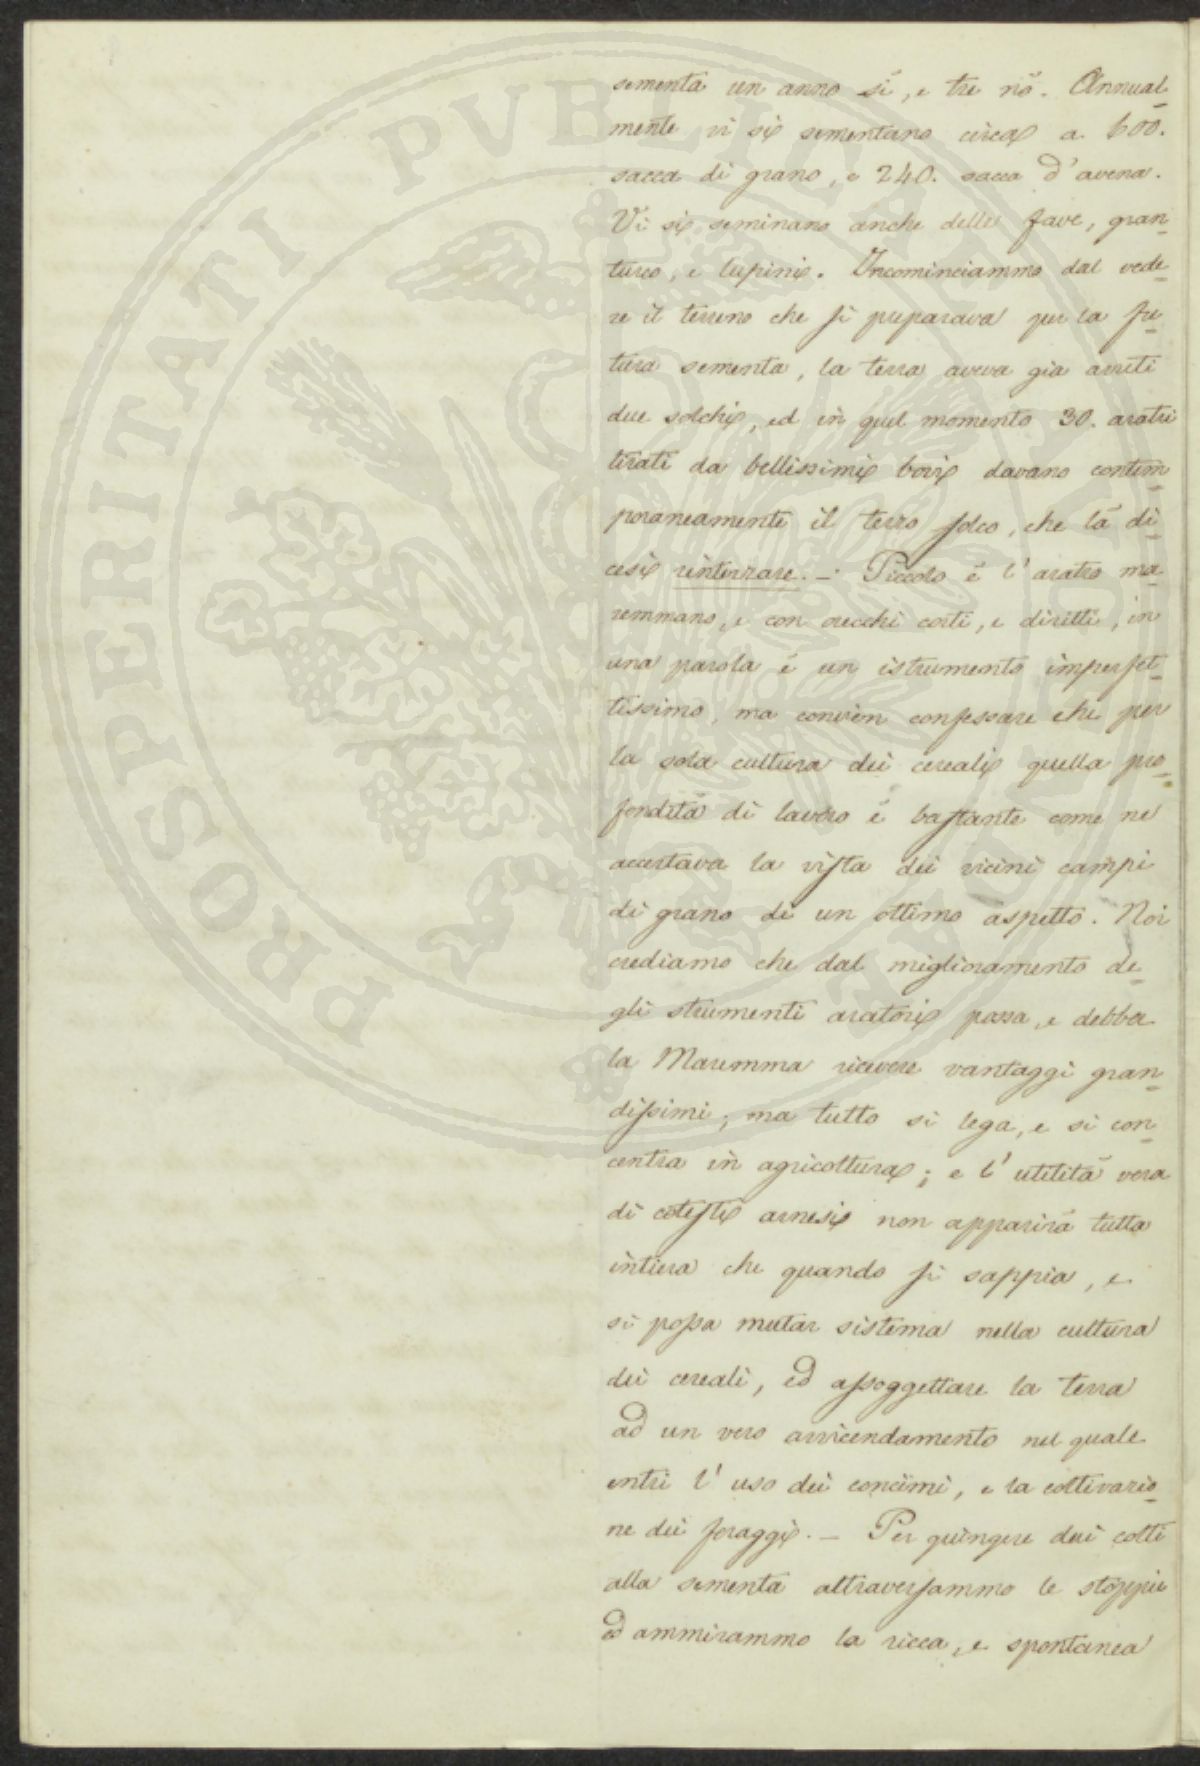 sementa un anno sì, e tre nò. Annual-
mente vi si sementano circa a 600.
sacca di grano, e 240. sacca d'avena.
Vi si seminano anche delle fave, gran-
turco, e lupini. Incominciammo dal vede-
re il terreno che si preparava per la fu-
tura sementa, la terra aveva già avuti
due solchi, ed in quel momento 30. aratri
tirati da bellissimi bovi davano contem-
poraneamente il terzo solco, che là di-
cesi rinterzare. – Piccolo è l'aratro ma-
remmano, e con orecchi corti, e diritti, in
una parola è un istrumento imperfet-
tissimo, ma convien confessare che per
la sola cultura dei cereali quella pro-
fondità di lavoro è bastante come ne
accertava la vista dei vicini campi
di grano di un ottimo aspetto. Noi
crediamo che dal miglioramento de-
gli strumenti aratori possa, e debba
la Maremma ricevere vantaggi gran-
dissimi; ma tutto si lega, e si con-
centra in agricoltura; e l'utilità vera
di cotesti arnesi non apparirà tutta
intiera che quando si sappia, e
si possa mutar sistema nella cultura
dei cereali, ed assoggettare la terra
ad un vero avvicendamento nel quale
entri l'uso dei concimi, e la coltivazio-
ne dei foraggi. – Per giungere dai colti
alla sementa attraversammo le stoppie
ed ammirammo la ricca, e spontanea
PROSPERITATI PVBLICAE